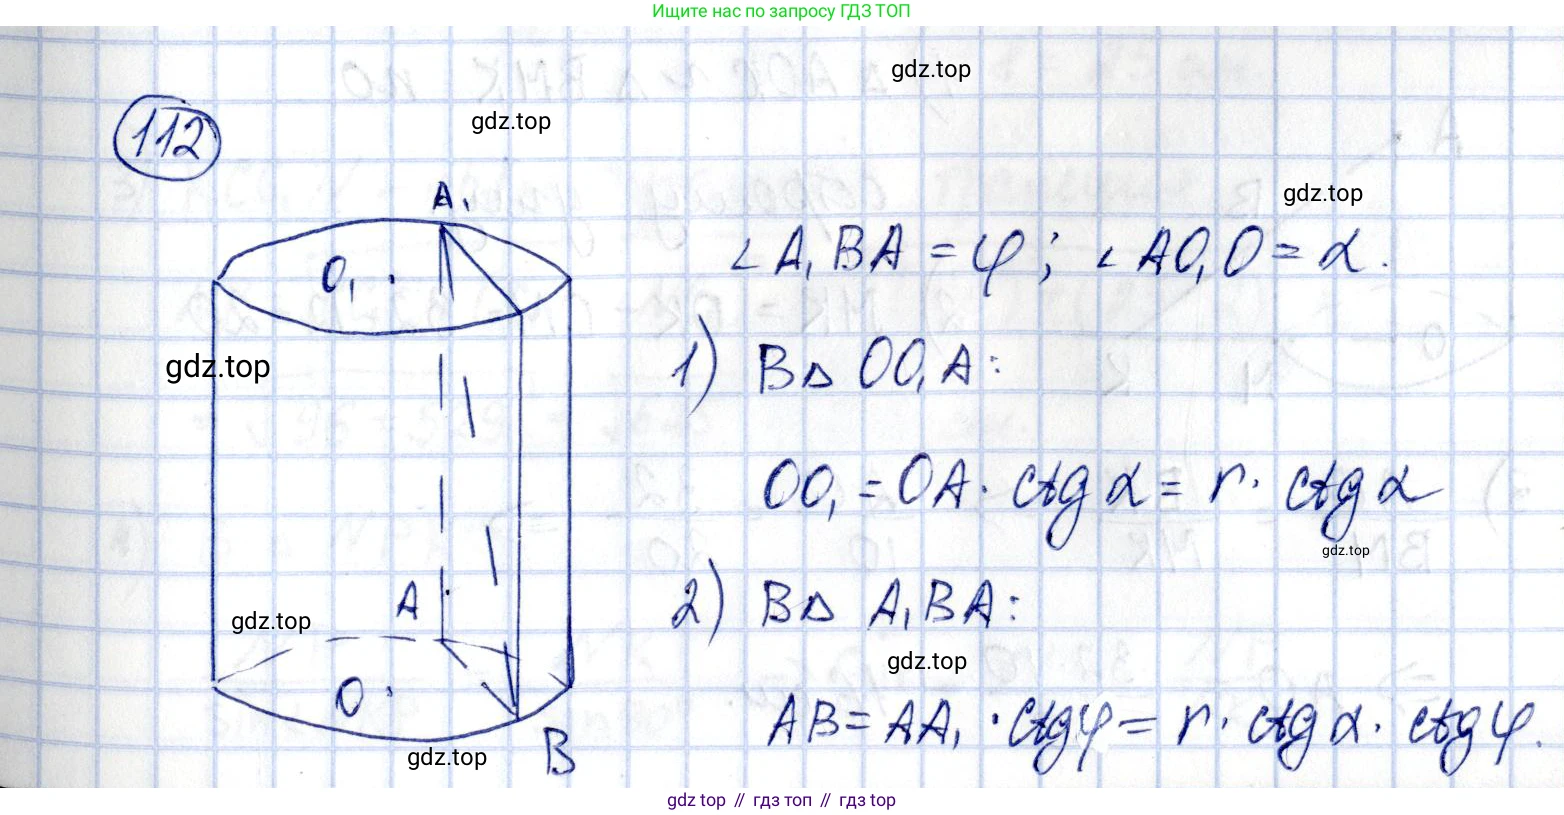 Ищите нас по запросу ГДЗ ТОП
gdz.top
gdz.top
112
gdz.top
A₁
O₁
∠A₁BA = φ; ∠AO₁O = α.
gdz.top
1) В △ OO₁A:
OO₁ = OA · ctg α = r · ctg α
gdz.top
A
2) В △ A₁BA:
gdz.top
gdz.top
O
AB = AA₁ · ctg φ = r · ctg α · ctg φ.
B
gdz.top
gdz top // гдз топ // гдз top